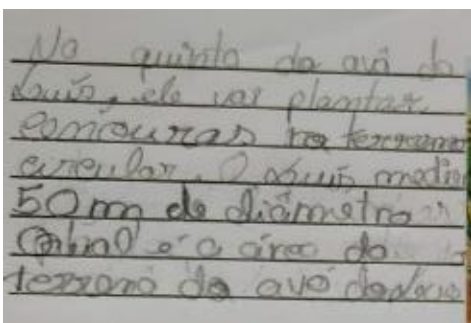 No quinta da avó do
Luís, ele vai plantar
cenouras no terreno
circular. O Luís mediu
50m de diâmetro
é a área do
terreno da avó do